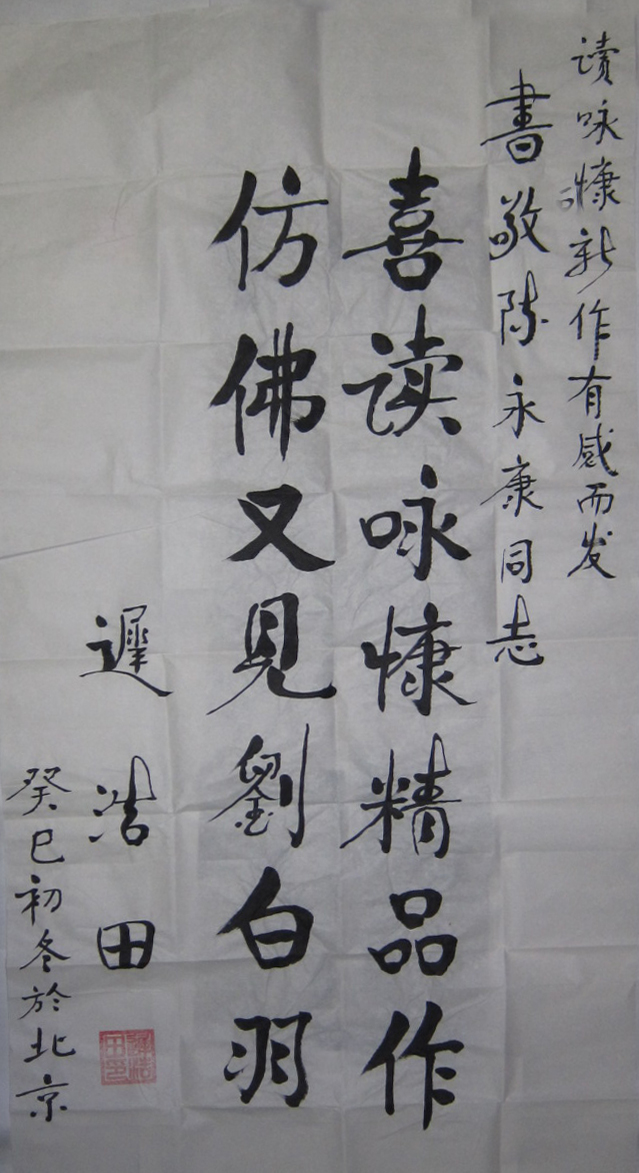 读咏慷新作有感而发
書敬陈永康同志
喜读咏慷精品作
仿佛又見劉白羽
遲浩田
癸巳初冬於北京